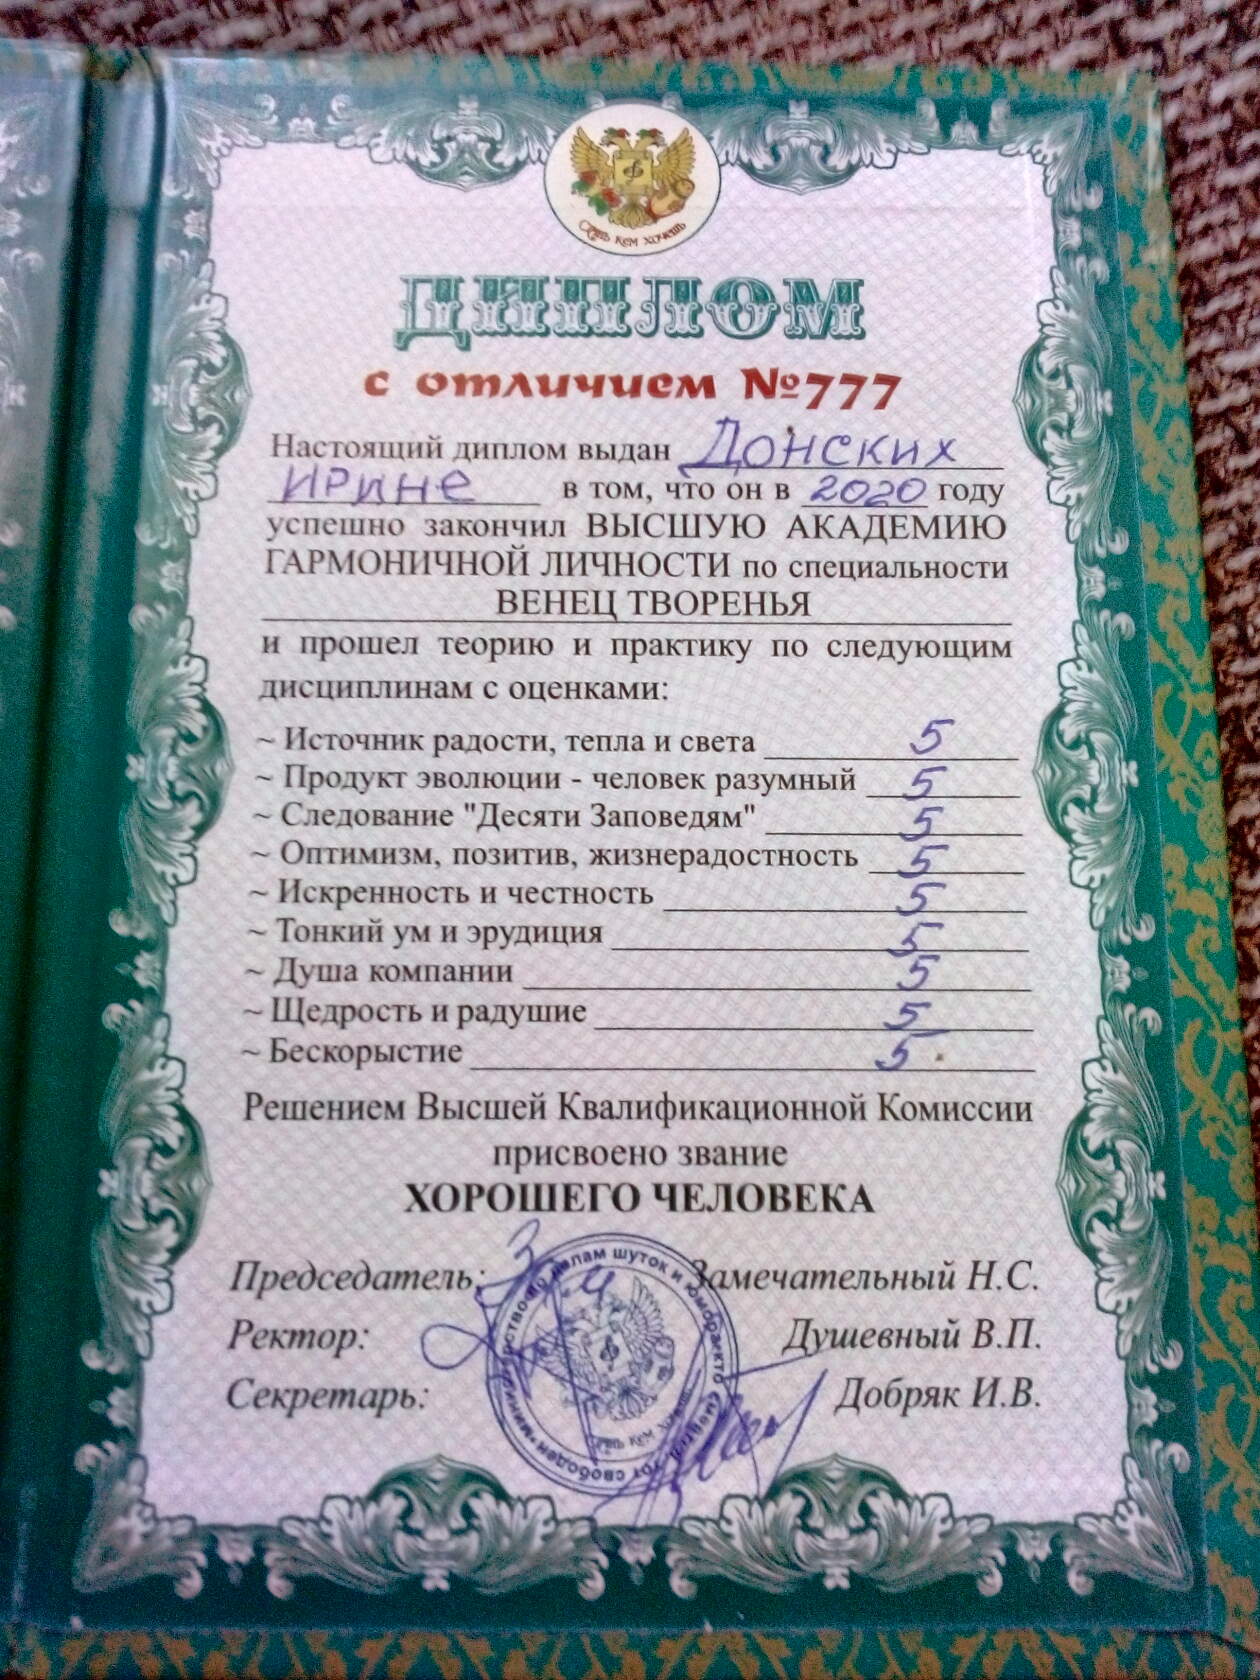 Будь кем хочешь
ДИПЛОМ
с отличием №777
Настоящий диплом выдан Донских
Ирине в том, что он в 2020 году
успешно закончил ВЫСШУЮ АКАДЕМИЮ
ГАРМОНИЧНОЙ ЛИЧНОСТИ по специальности
ВЕНЕЦ ТВОРЕНЬЯ
и прошел теорию и практику по следующим
дисциплинам с оценками:
~ Источник радости, тепла и света 5
~ Продукт эволюции - человек разумный 5
~ Следование "Десяти Заповедям" 5
~ Оптимизм, позитив, жизнерадостность 5
~ Искренность и честность 5
~ Тонкий ум и эрудиция 5
~ Душа компании 5
~ Щедрость и радушие 5
~ Бескорыстие 5
Решением Высшей Квалификационной Комиссии
присвоено звание
ХОРОШЕГО ЧЕЛОВЕКА
Председатель: Замечательный Н.С.
Ректор: Душевный В.П.
Секретарь: Добряк И.В.
министерство по делам шуток и юмора кто смеется тот свободен
Будь кем хочешь